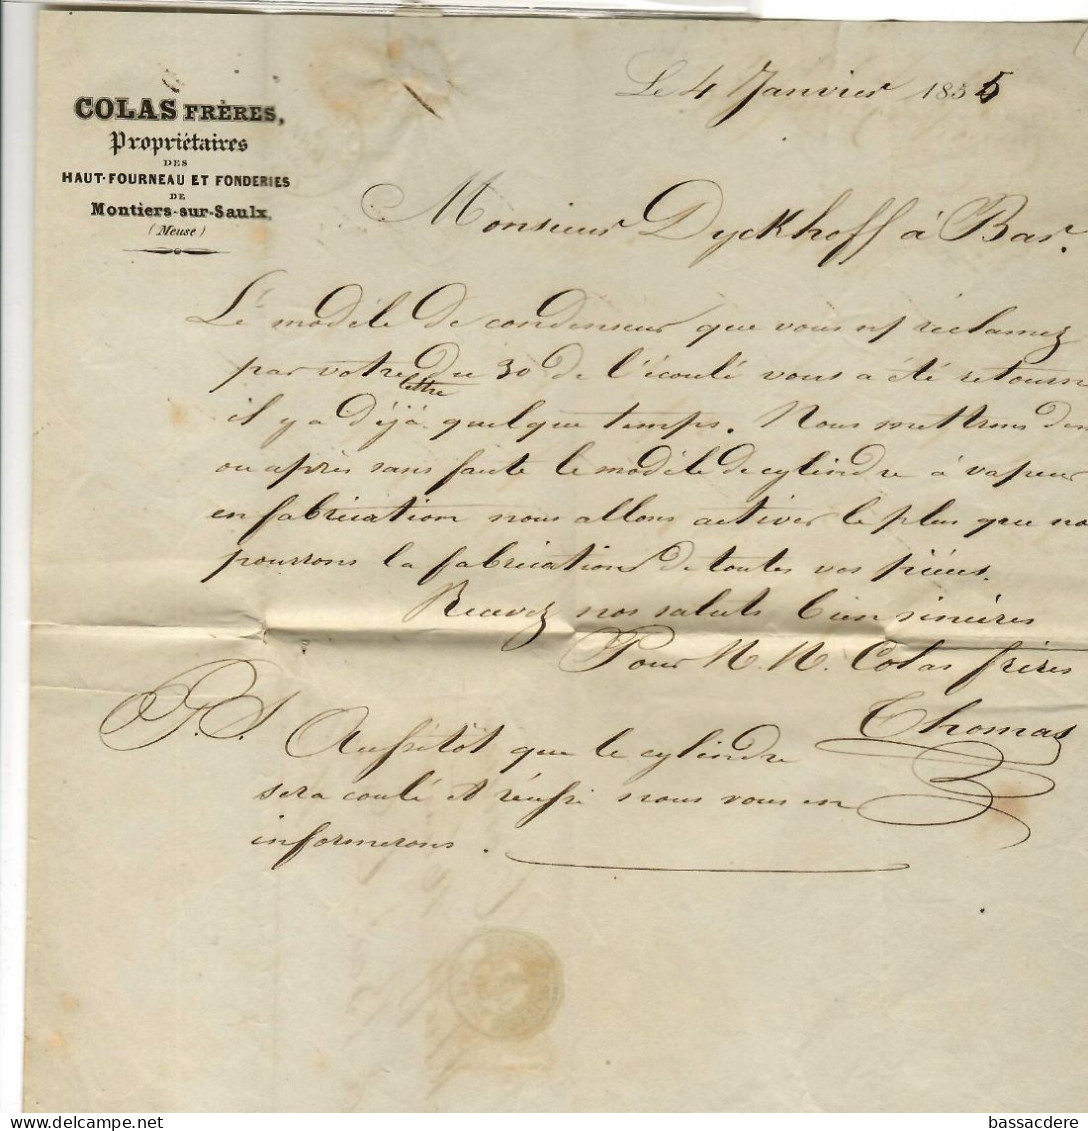 COLAS FRÈRES,
Propriétaires
DES
HAUT-FOURNEAU ET FONDERIES
DE
Montiers-sur-Saulx,
(Meuse)
Le 4 Janvier 1855
Monsieur Dyckhoff à Bar.
Le modèle de condenseur que vous réclamez
par votre lettre du 30 de l'écoulé vous a été retourn
il y a déjà quelque temps. Nous mettrons dem
ou après sans faute le modèle de cylindre à vapeur
en fabrication nous allons activer le plus que no
pourrons la fabrication de toutes vos pièces.
Recevez nos saluts bien sincères
Pour N. N. Colas frères
Thomas
P.S. Aussitôt que le cylindre
sera coulé et réussi nous vous en
informerons.
bassacdere